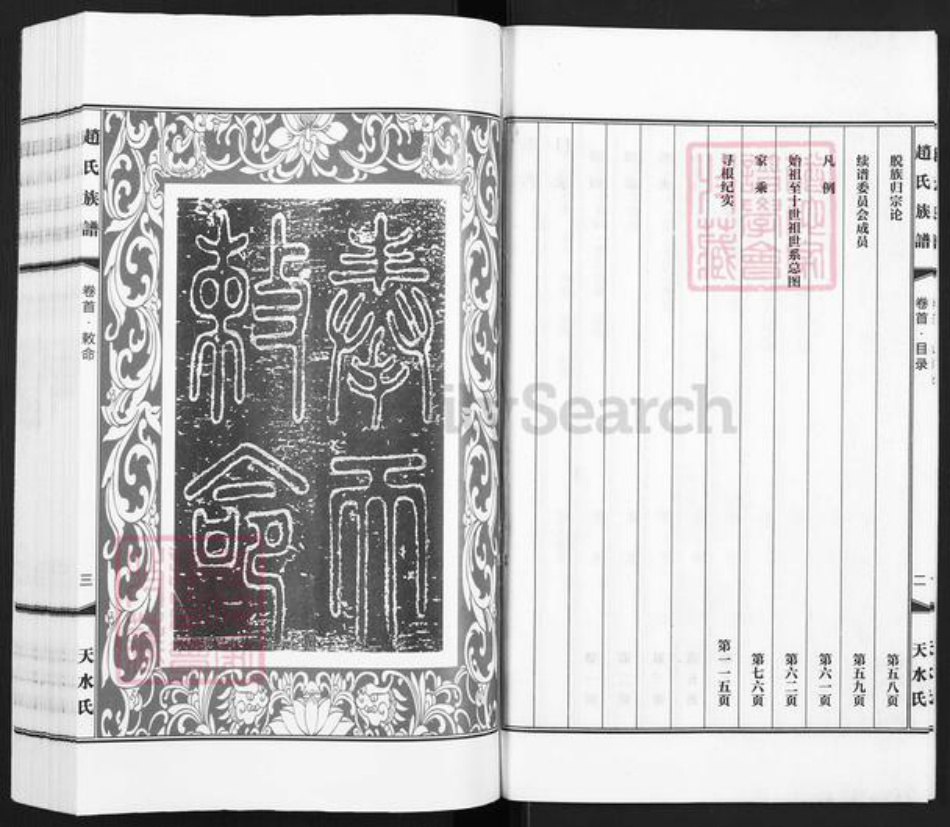 趙氏族譜
卷首·目录
二
天水氏
脱族归宗论 第五八页
续谱委员会成员 第五九页
凡 例 第六一页
始祖至十世祖世系总图 第六二页
家 乘 第七六页
寻根纪实 第一一五页
奉天
敕命
趙氏族譜
卷首·敕命
三
天水氏